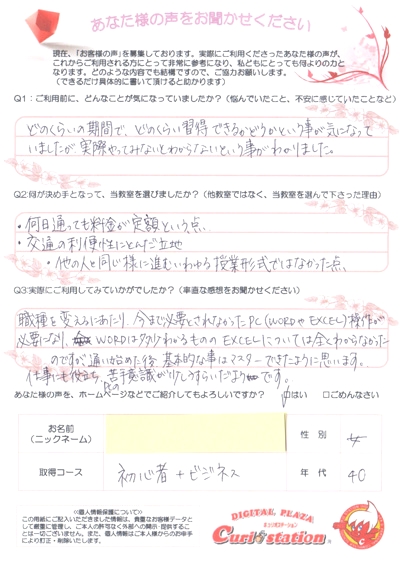 あなた様の声をお聞かせください
現在、「お客様の声」を募集しております。実際にご利用くださったあなた様の声が、
これからご利用される方にとって非常に参考になり、私どもにとっても何よりの力と
なります。どのような内容でも結構ですので、ご協力お願いします。
(できるだけ具体的に書いて頂けると助かります)
Q1:ご利用前に、どんなことが気になっていましたか?(悩んでいたこと、不安に感じていたことなど)
どのくらいの期間で、どのくらい習得できるかどうかという事が気になって
いましたが実際やってみないとわからないという事がわかりました。
Q2:何が決め手となって、当教室を選びましたか?(他教室ではなく、当教室を選んで下さった理由)
・何日通っても料金が定額という点、
・交通の利便性にとんだ立地
・他の人と同じ様に進むいわゆる授業形式ではなかった点、
Q3:実際にご利用してみていかがでしたか?(率直な感想をお聞かせください)
職種を変えるにあたり、今まで必要とされなかったPC(WORDやEXCEL)操作が
必要になり、WORDは多少わかるもののEXCELについては全くわからなかった
のですが、通い始めた後、基本的な事はマスターできたように思います。
仕事にも役立ち、苦手意識が少しうすらいだようです。
あなた様の声を、ホームページなどでご紹介してもよろしいですか? □はい □ごめんなさい
お名前
(ニックネーム)
性別 女
取得コース 初心者+ビジネス 年代 40
≪個人情報保護について≫
この用紙にご記入いただきました情報は、貴重なお客様データと
して厳重に管理し、ご本人の許可なく外部への開示・提供すること
は一切ございません。また、個人情報はご本人様からのお申し
により訂正・削除いたします。
DIGITAL PLAZA
キュリオステーション
Curio station